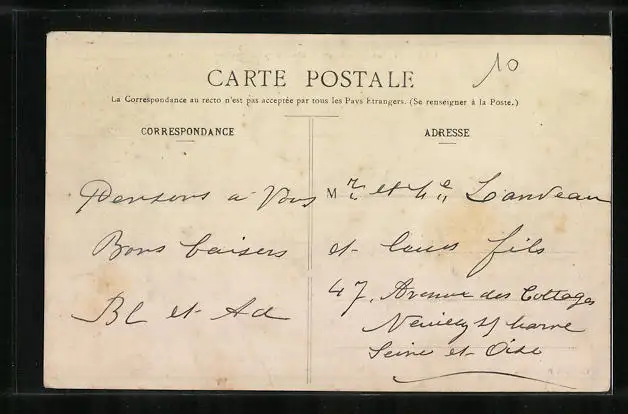 10
CARTE POSTALE
La Correspondance au recto n'est pas acceptée par tous les Pays Etrangers. (Se renseigner à la Poste.)
CORRESPONDANCE
Pensons à Vous
Bons baisers
Bl et Ad
ADRESSE
Mr et Me Landeau
et leurs fils
47, Avenue des Cottages
Neuilly s/ marne
Seine et Oise